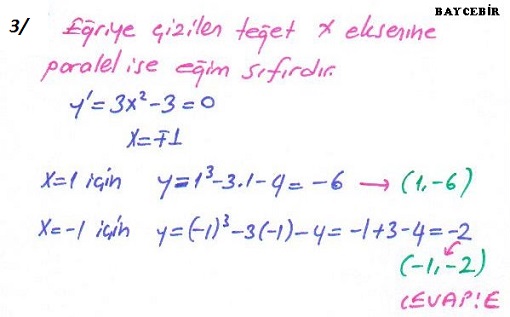 BAYCEBİR
3/ Eğriye çizilen teğet x eksenine
paralel ise eğim sıfırdır.
y' = 3x² - 3 = 0
x = ∓1
x = 1 için y = 1³ - 3.1 - 4 = -6 → (1, -6)
x = -1 için y = (-1)³ - 3(-1) - 4 = -1 + 3 - 4 = -2
(-1, -2)
CEVAP: E